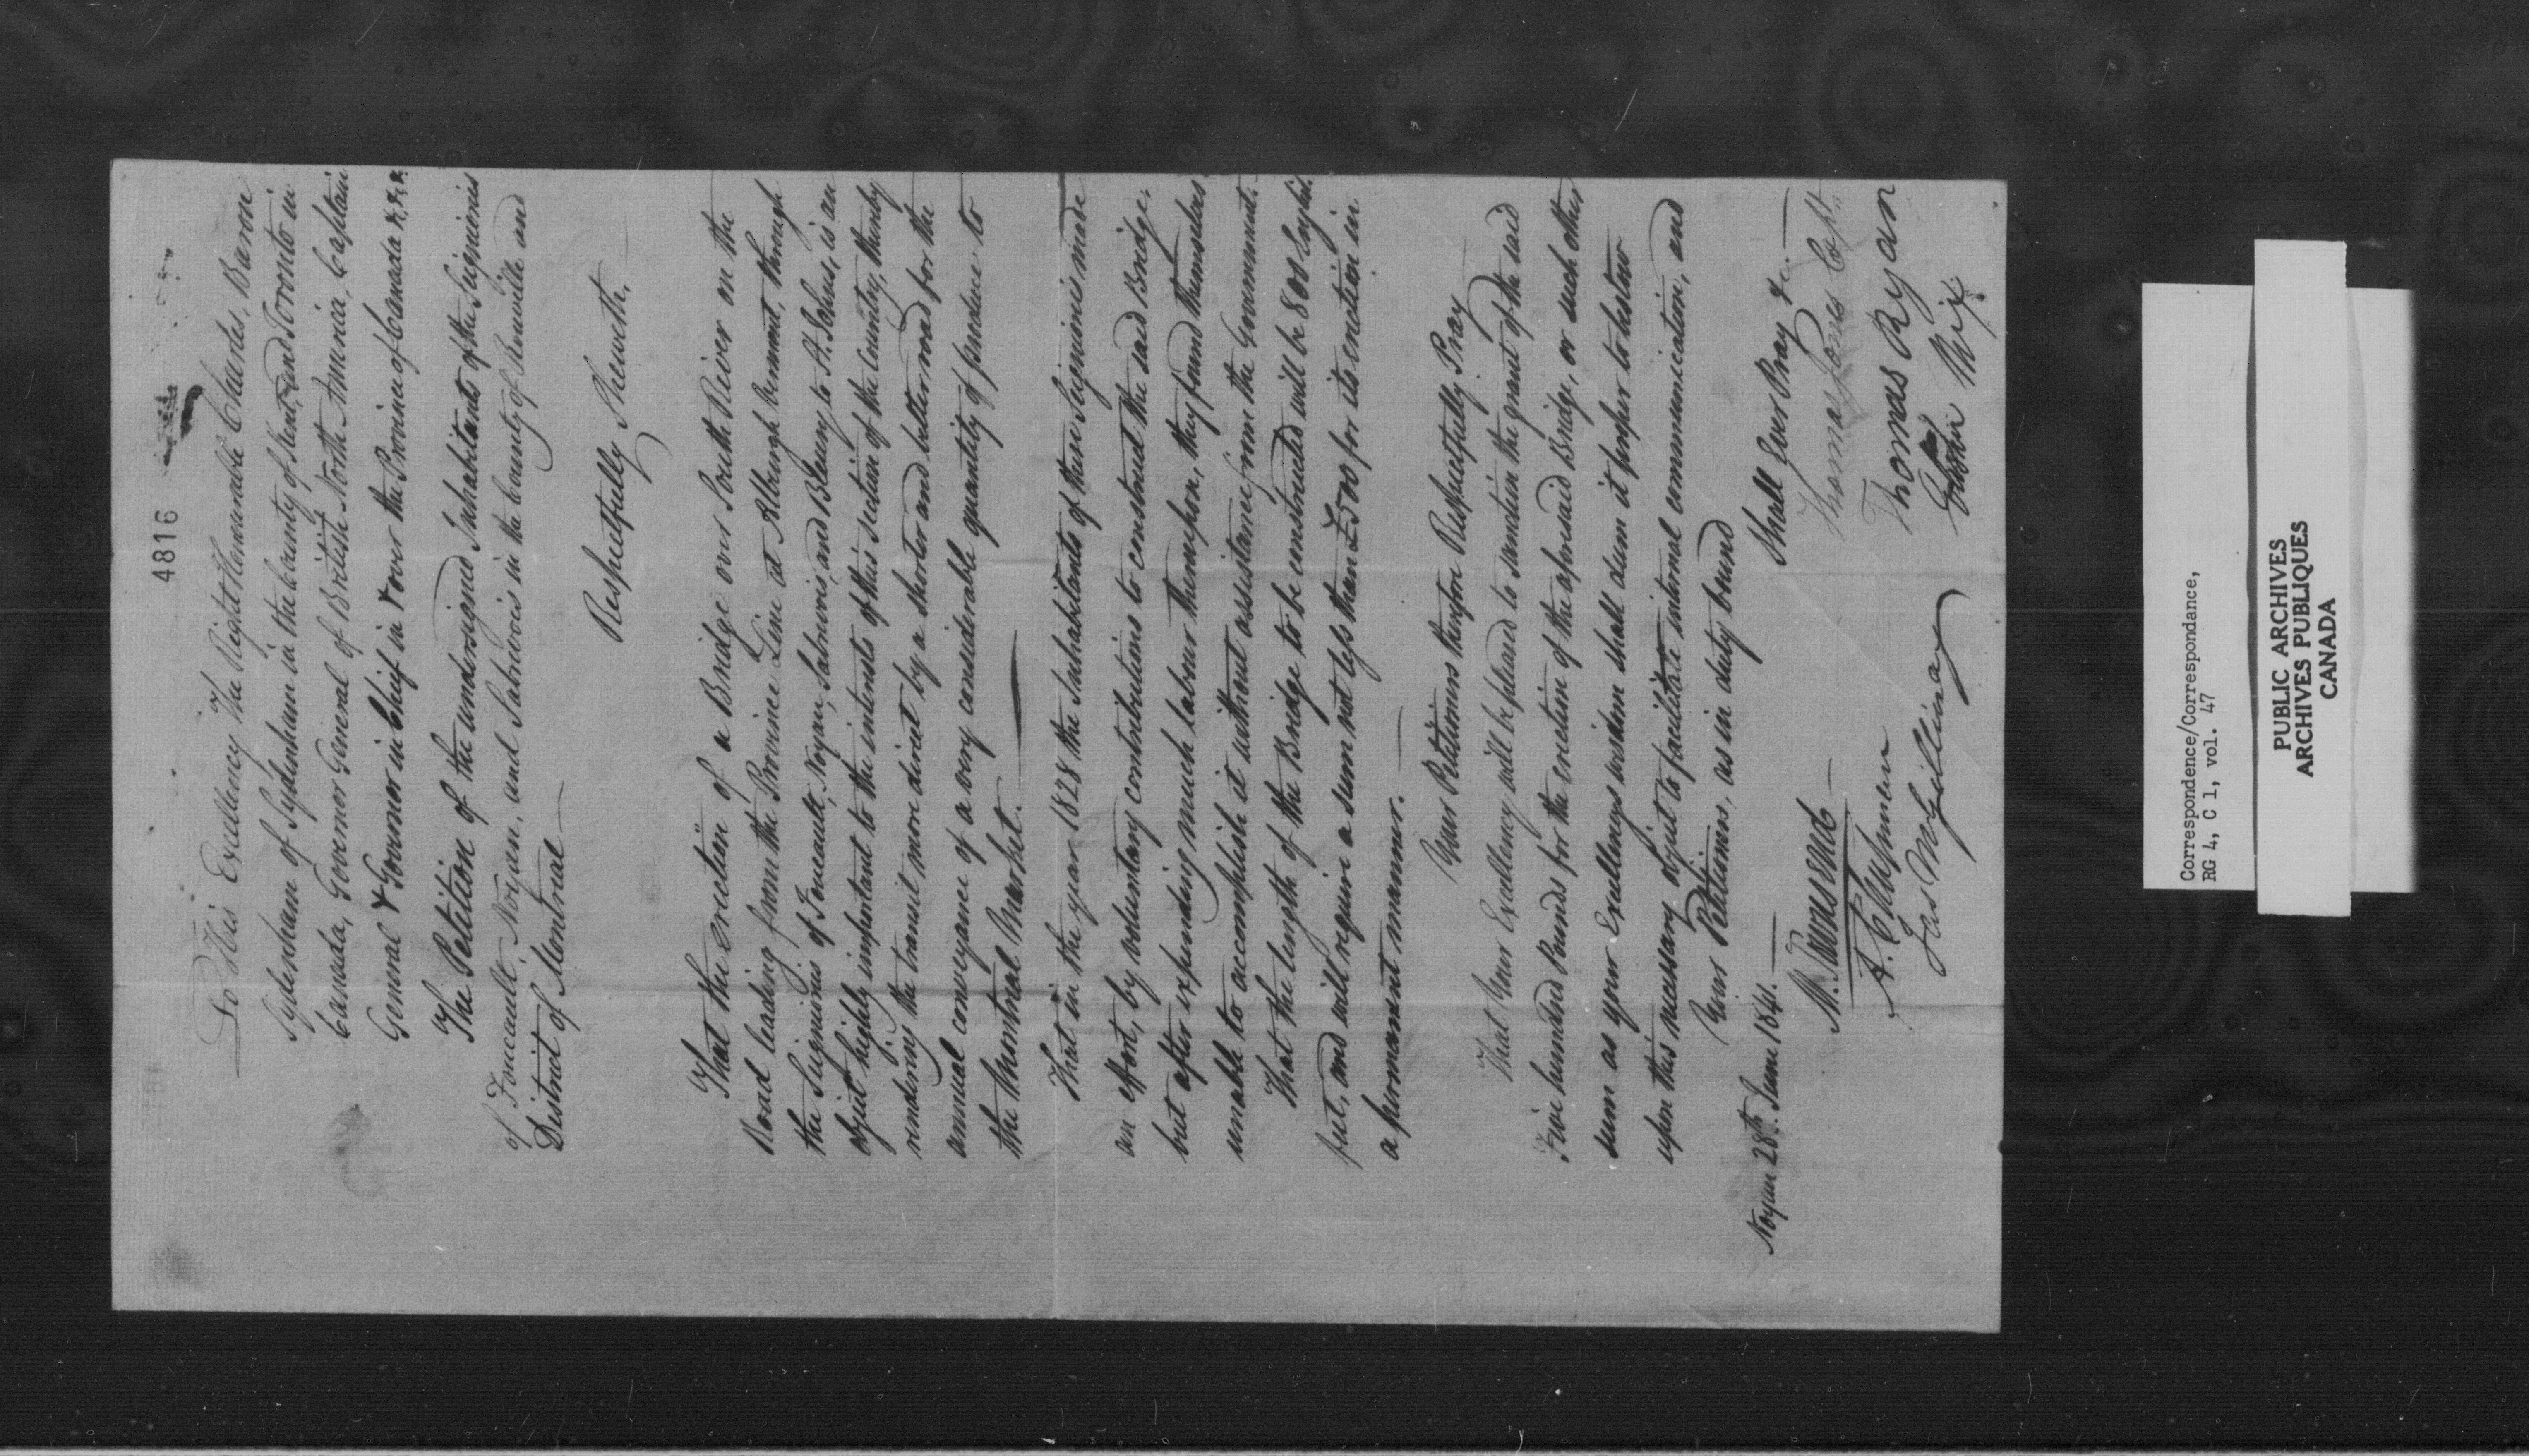 4816
To His Excellency The Right Honourable Charles, Baron
Sydenham of Sydenham in the County of Kent, and Toronto in
Canada, Governor General of British North America, Captain
General & Governor in Chief in & over the Province of Canada &,&,&.
The Petition of the undersigned Inhabitants of the Seigniories
of Foucault, Noyan, and Sabrevois in the County of Rouville and
District of Montreal —
Respectfully Sheweth, —
That the erection of a Bridge over South River on the
Road leading from the Province Line at Alburgh Vermont, through
the Seigniories of Foucault, Noyan, Sabrevois, and Bleury to St. Johns, is an
object highly important to the interests of this section of the Country, thereby
rendering the transit more direct by a shorter and better road for the
annual conveyance of a very considerable quantity of produce to
the Montreal Market. —
That in the year 1828 the Inhabitants of these Seigniories made
an effort, by voluntary contributions to construct the said Bridge,
but after expending much labour thereupon, they found themselves
unable to accomplish it without assistance from the Government. —
That the length of the Bridge to be constructed will be 800 English
feet, and will require a sum not less than £500 for its erection in
a permanent manner. —
Your Petitioners therefore Respectfully Pray
That Your Excellency will be pleased to sanction the grant of the said
Five hundred Pounds for the erection of the aforesaid Bridge, or such other
sum as your Excellency's wisdom shall deem it proper to bestow
upon this necessary object to facilitate internal communication, and
Your Petitioners, as in duty bound
Shall Ever Pray &c. —
Noyan 28th. June 1841. —
Thomas Jones Capt.
M. Townsend —
Thomas Ryan
A. Chapman
Mix
Jas McGillivray
Correspondence/Correspondance,
RG 4, C 1, vol. 47
PUBLIC ARCHIVES
ARCHIVES PUBLIQUES
CANADA